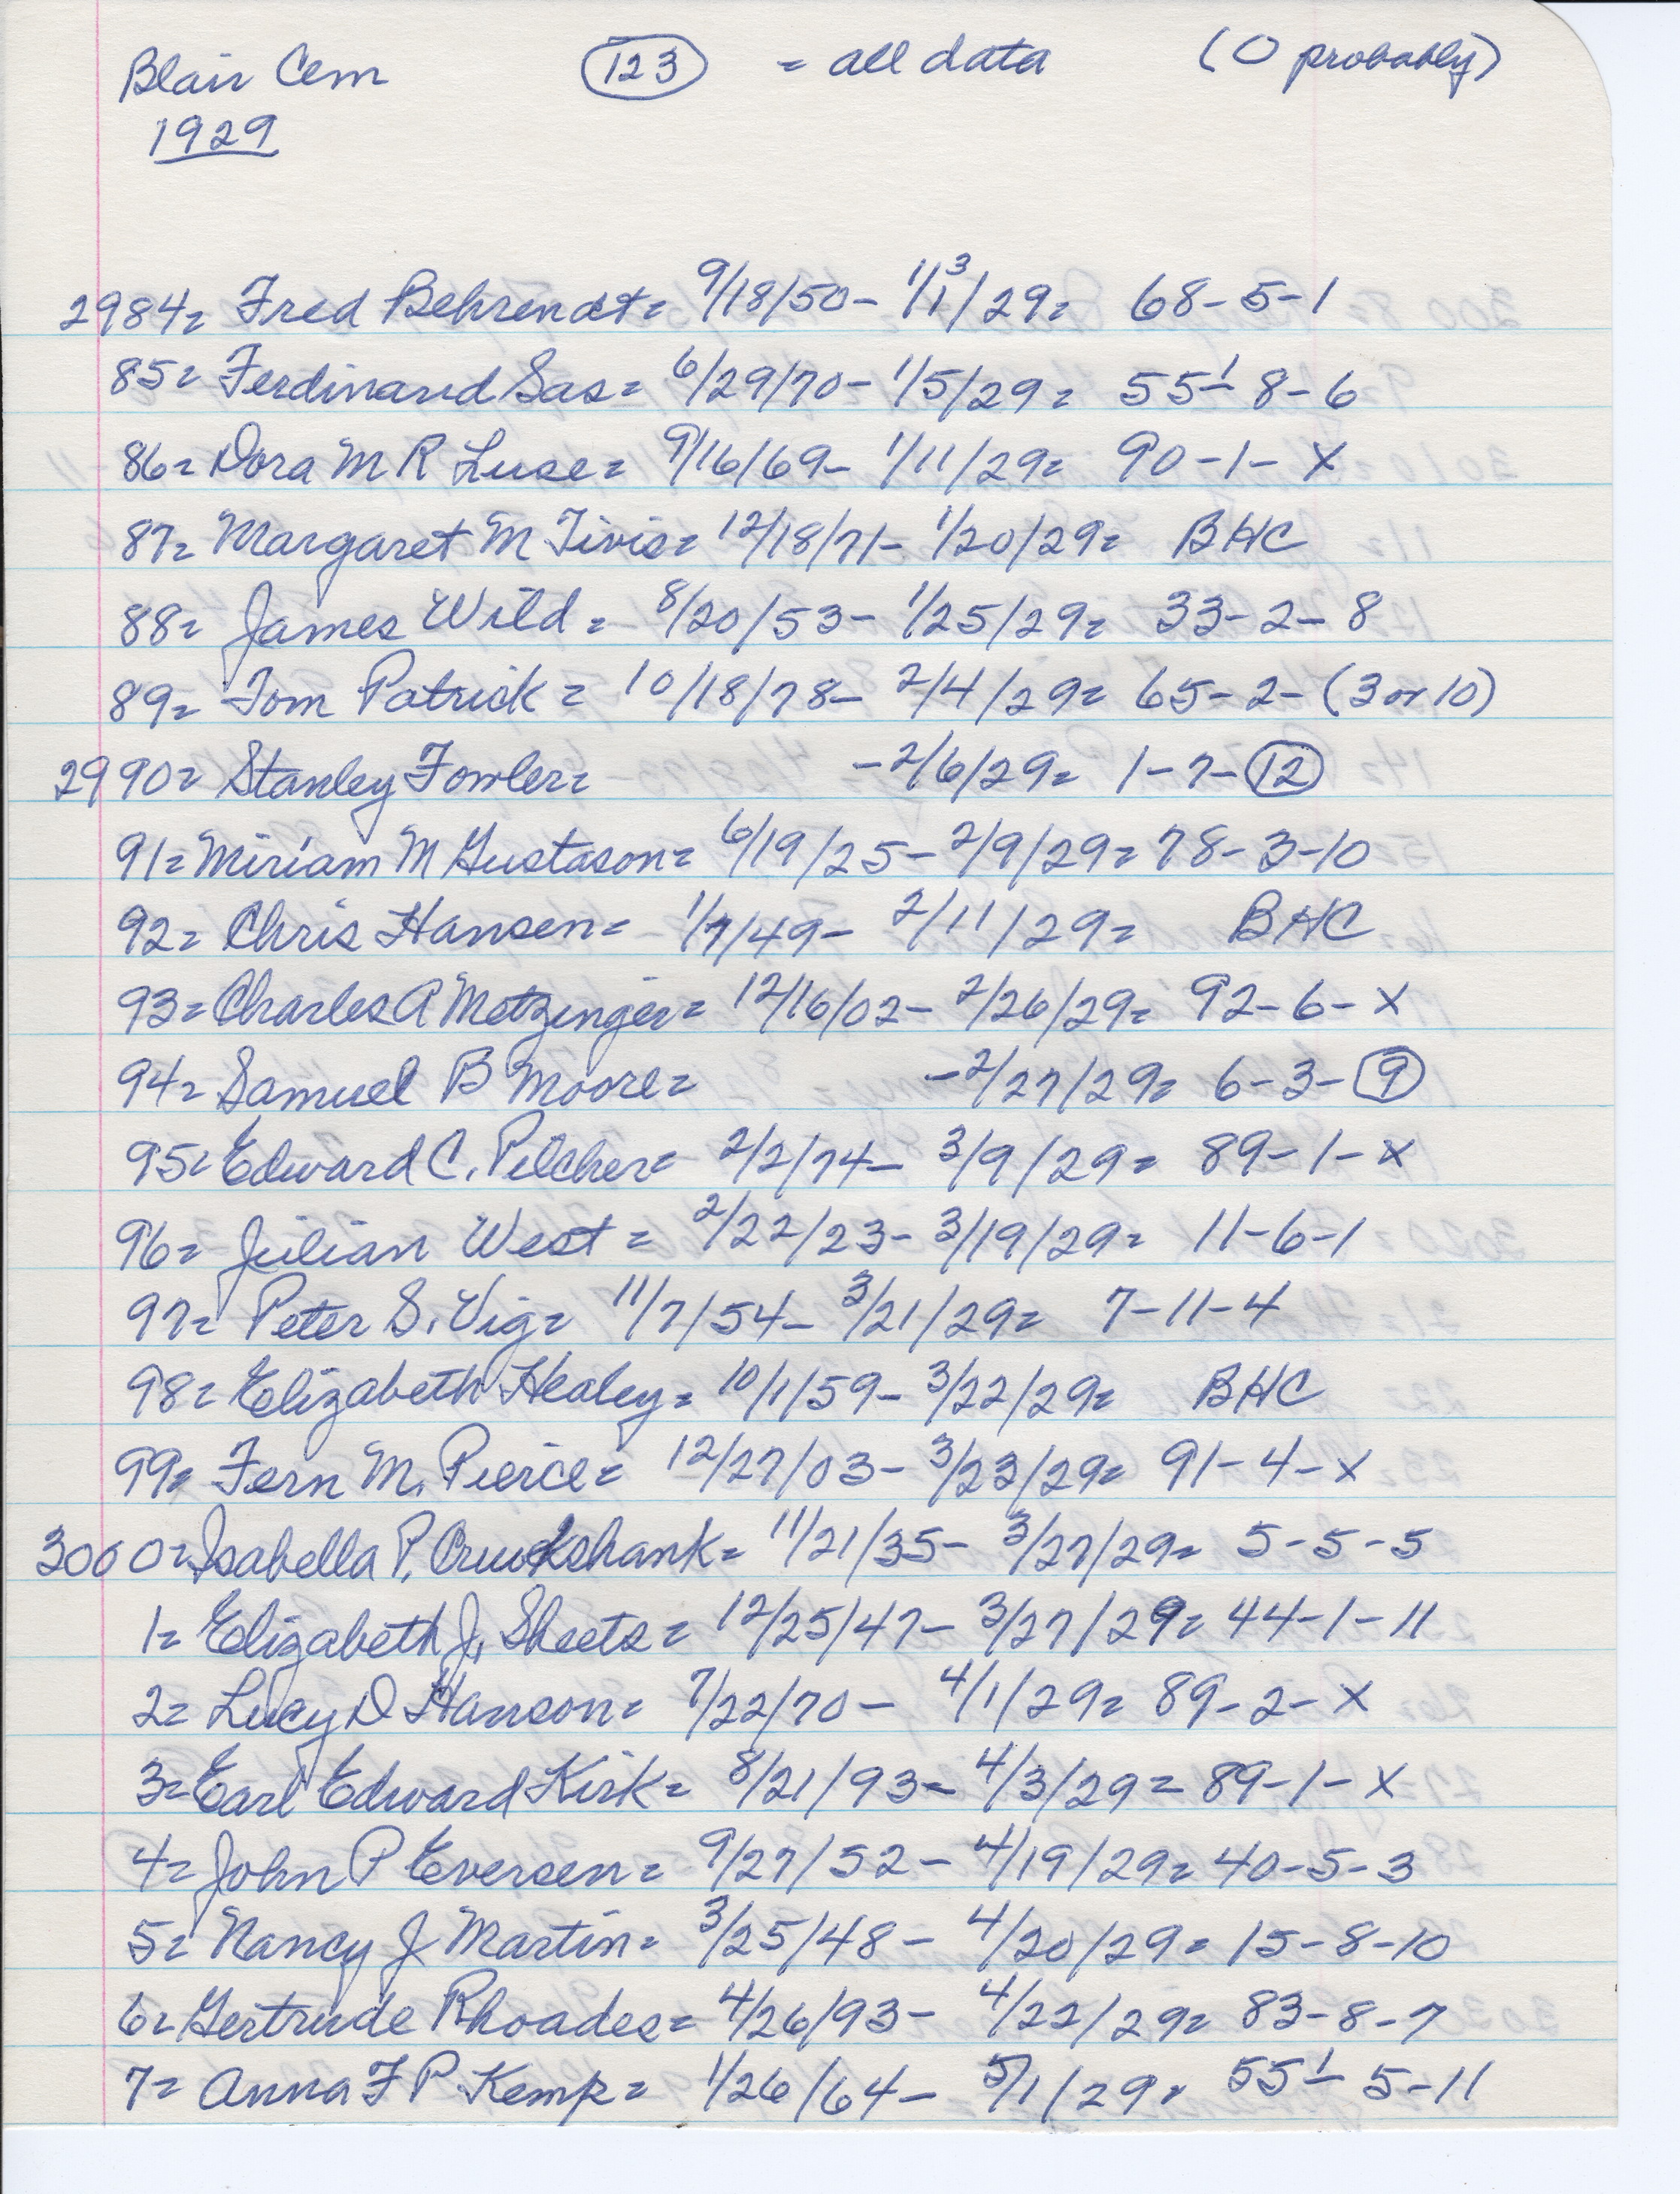 Blair Cem (123) = all data (0 probably)
1929
2984= Fred Behrendt= 9/18/50- 1/1³/29= 68-5-1
85= Ferdinand Sas= 6/29/70- 1/5/29= 55½- 8-6
86= Dora M R Luse= 9/16/69- 1/11/29= 90-1-X
87= Margaret M Tivis= 12/18/71- 1/20/29= BHC
88= James Wild= 8/20/53- 1/25/29= 33-2-8
89= Tom Patrick= 10/18/78- 2/4/29= 65-2-(3 or 10)
2990= Stanley Fowler= -2/6/29= 1-7-(12)
91= Miriam M Gustason= 6/19/25- 2/9/29= 78-3-10
92= Chris Hansen= 1/7/49- 2/11/29= BHC
93= Charles A Metzinger= 12/16/02- 2/26/29= 92-6-X
94= Samuel B Moore= -2/27/29= 6-3-(9)
95= Edward C. Pilcher= 2/2/74- 3/9/29= 89-1-X
96= Julian West= 2/22/23- 3/19/29= 11-6-1
97= Peter S. Vig= 11/7/54- 3/21/29= 7-11-4
98= Elizabeth Healey= 10/1/59- 3/22/29= BHC
99= Fern M. Pierce= 12/27/03- 3/23/29= 91-4-X
3000= Isabella P. Cruickshank= 11/21/35- 3/27/29= 5-5-5
1= Elizabeth J. Sheets= 12/25/47- 3/27/29= 44-1-11
2= Lucy D Hanson= 7/22/70- 4/1/29= 89-2-X
3= Earl Edward Kirk= 8/21/93- 4/3/29= 89-1-X
4= John P Eversen= 9/27/52- 4/19/29= 40-5-3
5= Nancy J Martin= 3/25/48- 4/20/29= 15-8-10
6= Gertrude Rhoades= 4/26/93- 4/22/29= 83-8-7
7= Anna F P Kemp= 1/26/64- 5/1/29= 55½- 5-11